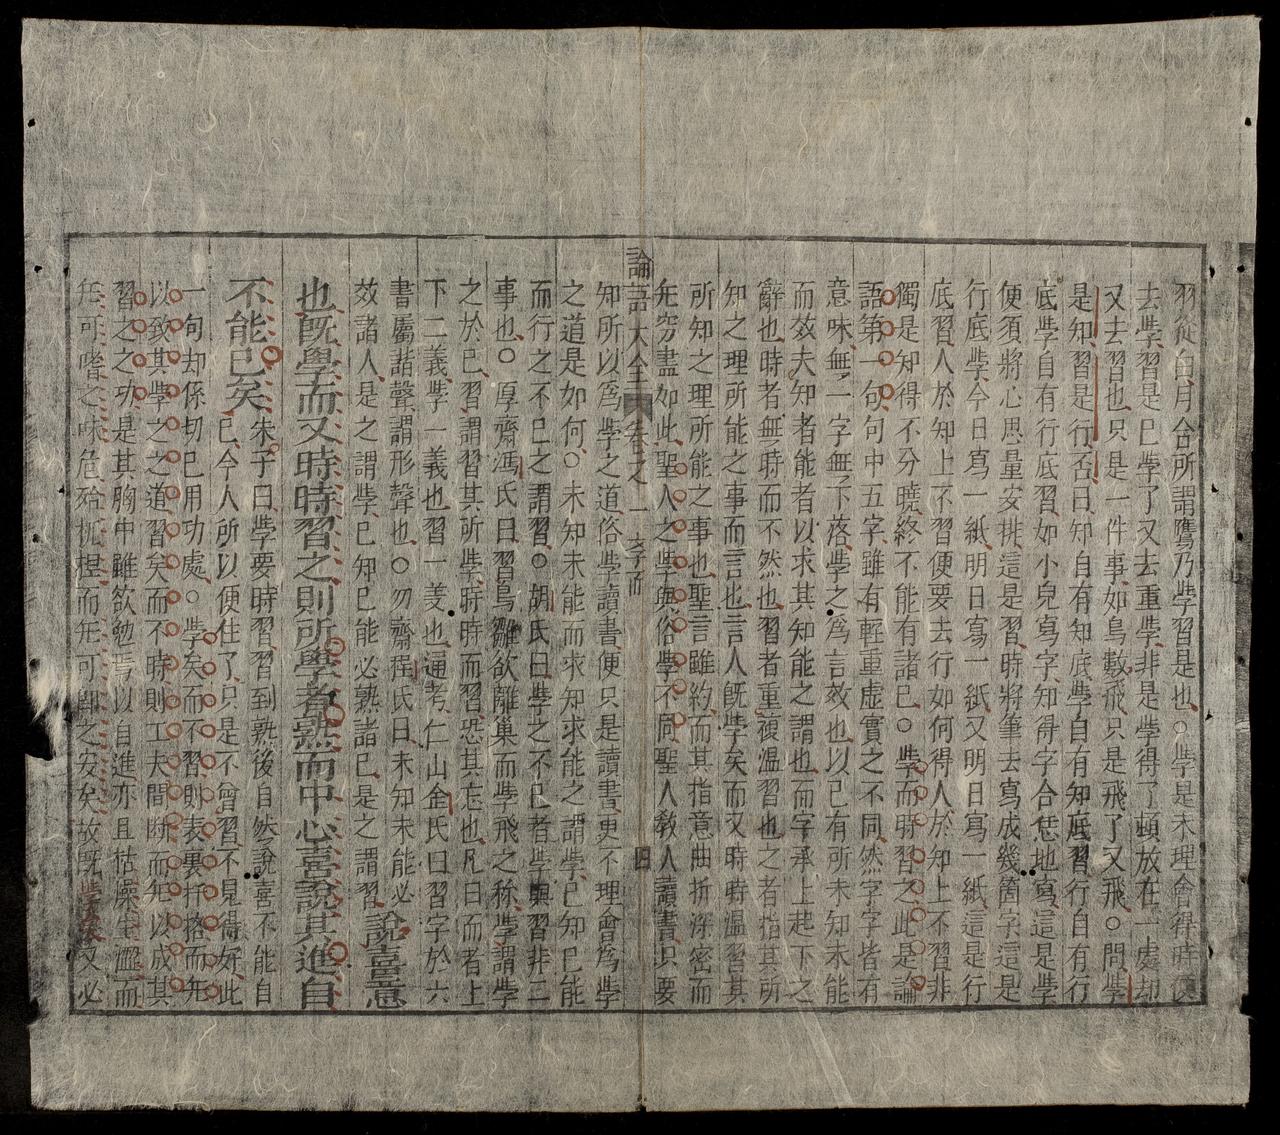 習從白月合所謂鷹乃𭓕習是也○𭓕是未理會得時便
去𭓕習是已𭓕了又去重𭓕非是𭓕得了頓放在一處却
又去習也只是一件事如鳥數飛只是飛了又飛○問𭓕
是知習是行否曰知自有知底𭓕自有知底習行自有行
底𭓕自有行底習如小兒寫字知得字合恁地寫這是𭓕
便須將心思量安排這是習時將筆去寫成幾箇字這是
行底𭓕今日寫一紙明日寫一紙又明日寫一紙這是行
底習人於知上不習便要去行如何得人於知上不習非
獨是知得不分曉終不能有諸已○𭓕而時習之此是論
語第一句句中五字雖有輕重虛實之不同然字字皆有
意味無一字無下落𭓕之爲言效也以已有所未知未能
而效夫知者能者以求其知能之謂也而字承上起下之
辭也時者無時而不然也習者重復溫習也之者指其所
知之理所能之事而言也言人旣𭓕矣而又時時溫習其
所知之理所能之事也聖言雖約而其指意曲折深密而
无窮盡如此聖人之𭓕與俗𭓕不同聖人敎人讀書只要
論語大全 卷之一 𭓕而 四
知所以爲𭓕之道俗𭓕讀書便只是讀書更不理會爲𭓕
之道是如何○未知未能而求知求能之謂𭓕已知已能
而行之不已之謂習○胡氏曰𭓕之不已者𭓕與習非二
事也○厚齋馮氏曰習鳥雛欲離巢而𭓕飛之称𭓕謂𭓕
之於已習謂習其所𭓕時時而習恐其忘也凡曰而者上
下二義𭓕一義也習一義也通考仁山金氏曰習字於六
書屬諧聲謂形聲也○勿齋程氏曰未知未能必
效諸人是之謂𭓕已知已能必熟諸已是之謂習說喜意
也旣學而又時時習之則所學者熟而中心喜說其進自
不能已矣朱子曰𭓕要時習習到熟後自然說喜不能自
已今人所以便住了只是不曾習不見得好此
一句却係切已用功處○𭓕矣而不習則表裏扞格而无
以致其𭓕之之道習矣而不時則工夫間断而无以成其
習之之功是其胸中雖欲勉焉以自進亦且枯燥生澀而
无可嗜之味危殆杌捏而无可卽之安矣故旣𭓕矣又必